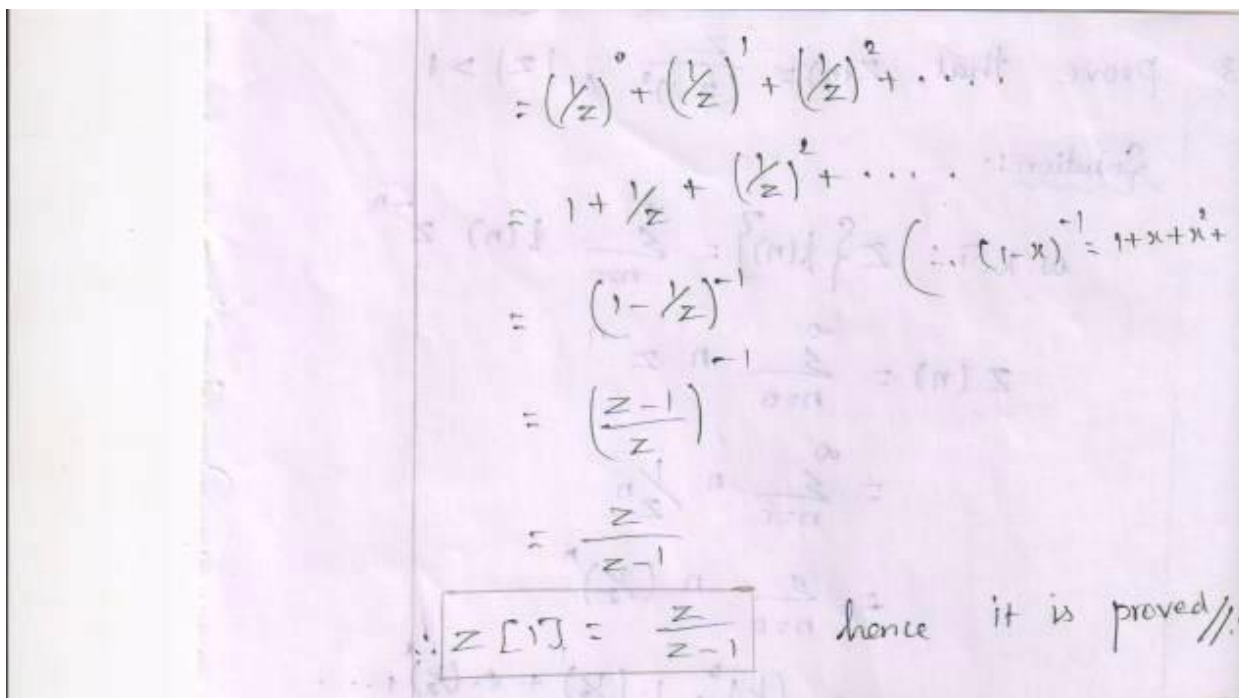 = (1/z)^0 + (1/z)^1 + (1/z)^2 + ....
= 1 + 1/z + (1/z)^2 + ....
(∵ (1-x)^-1 = 1+x+x^2+
= (1 - 1/z)^-1
= ((z-1)/z)^-1
= z/(z-1)
∴ Z[1] = z/(z-1) hence it is proved//.